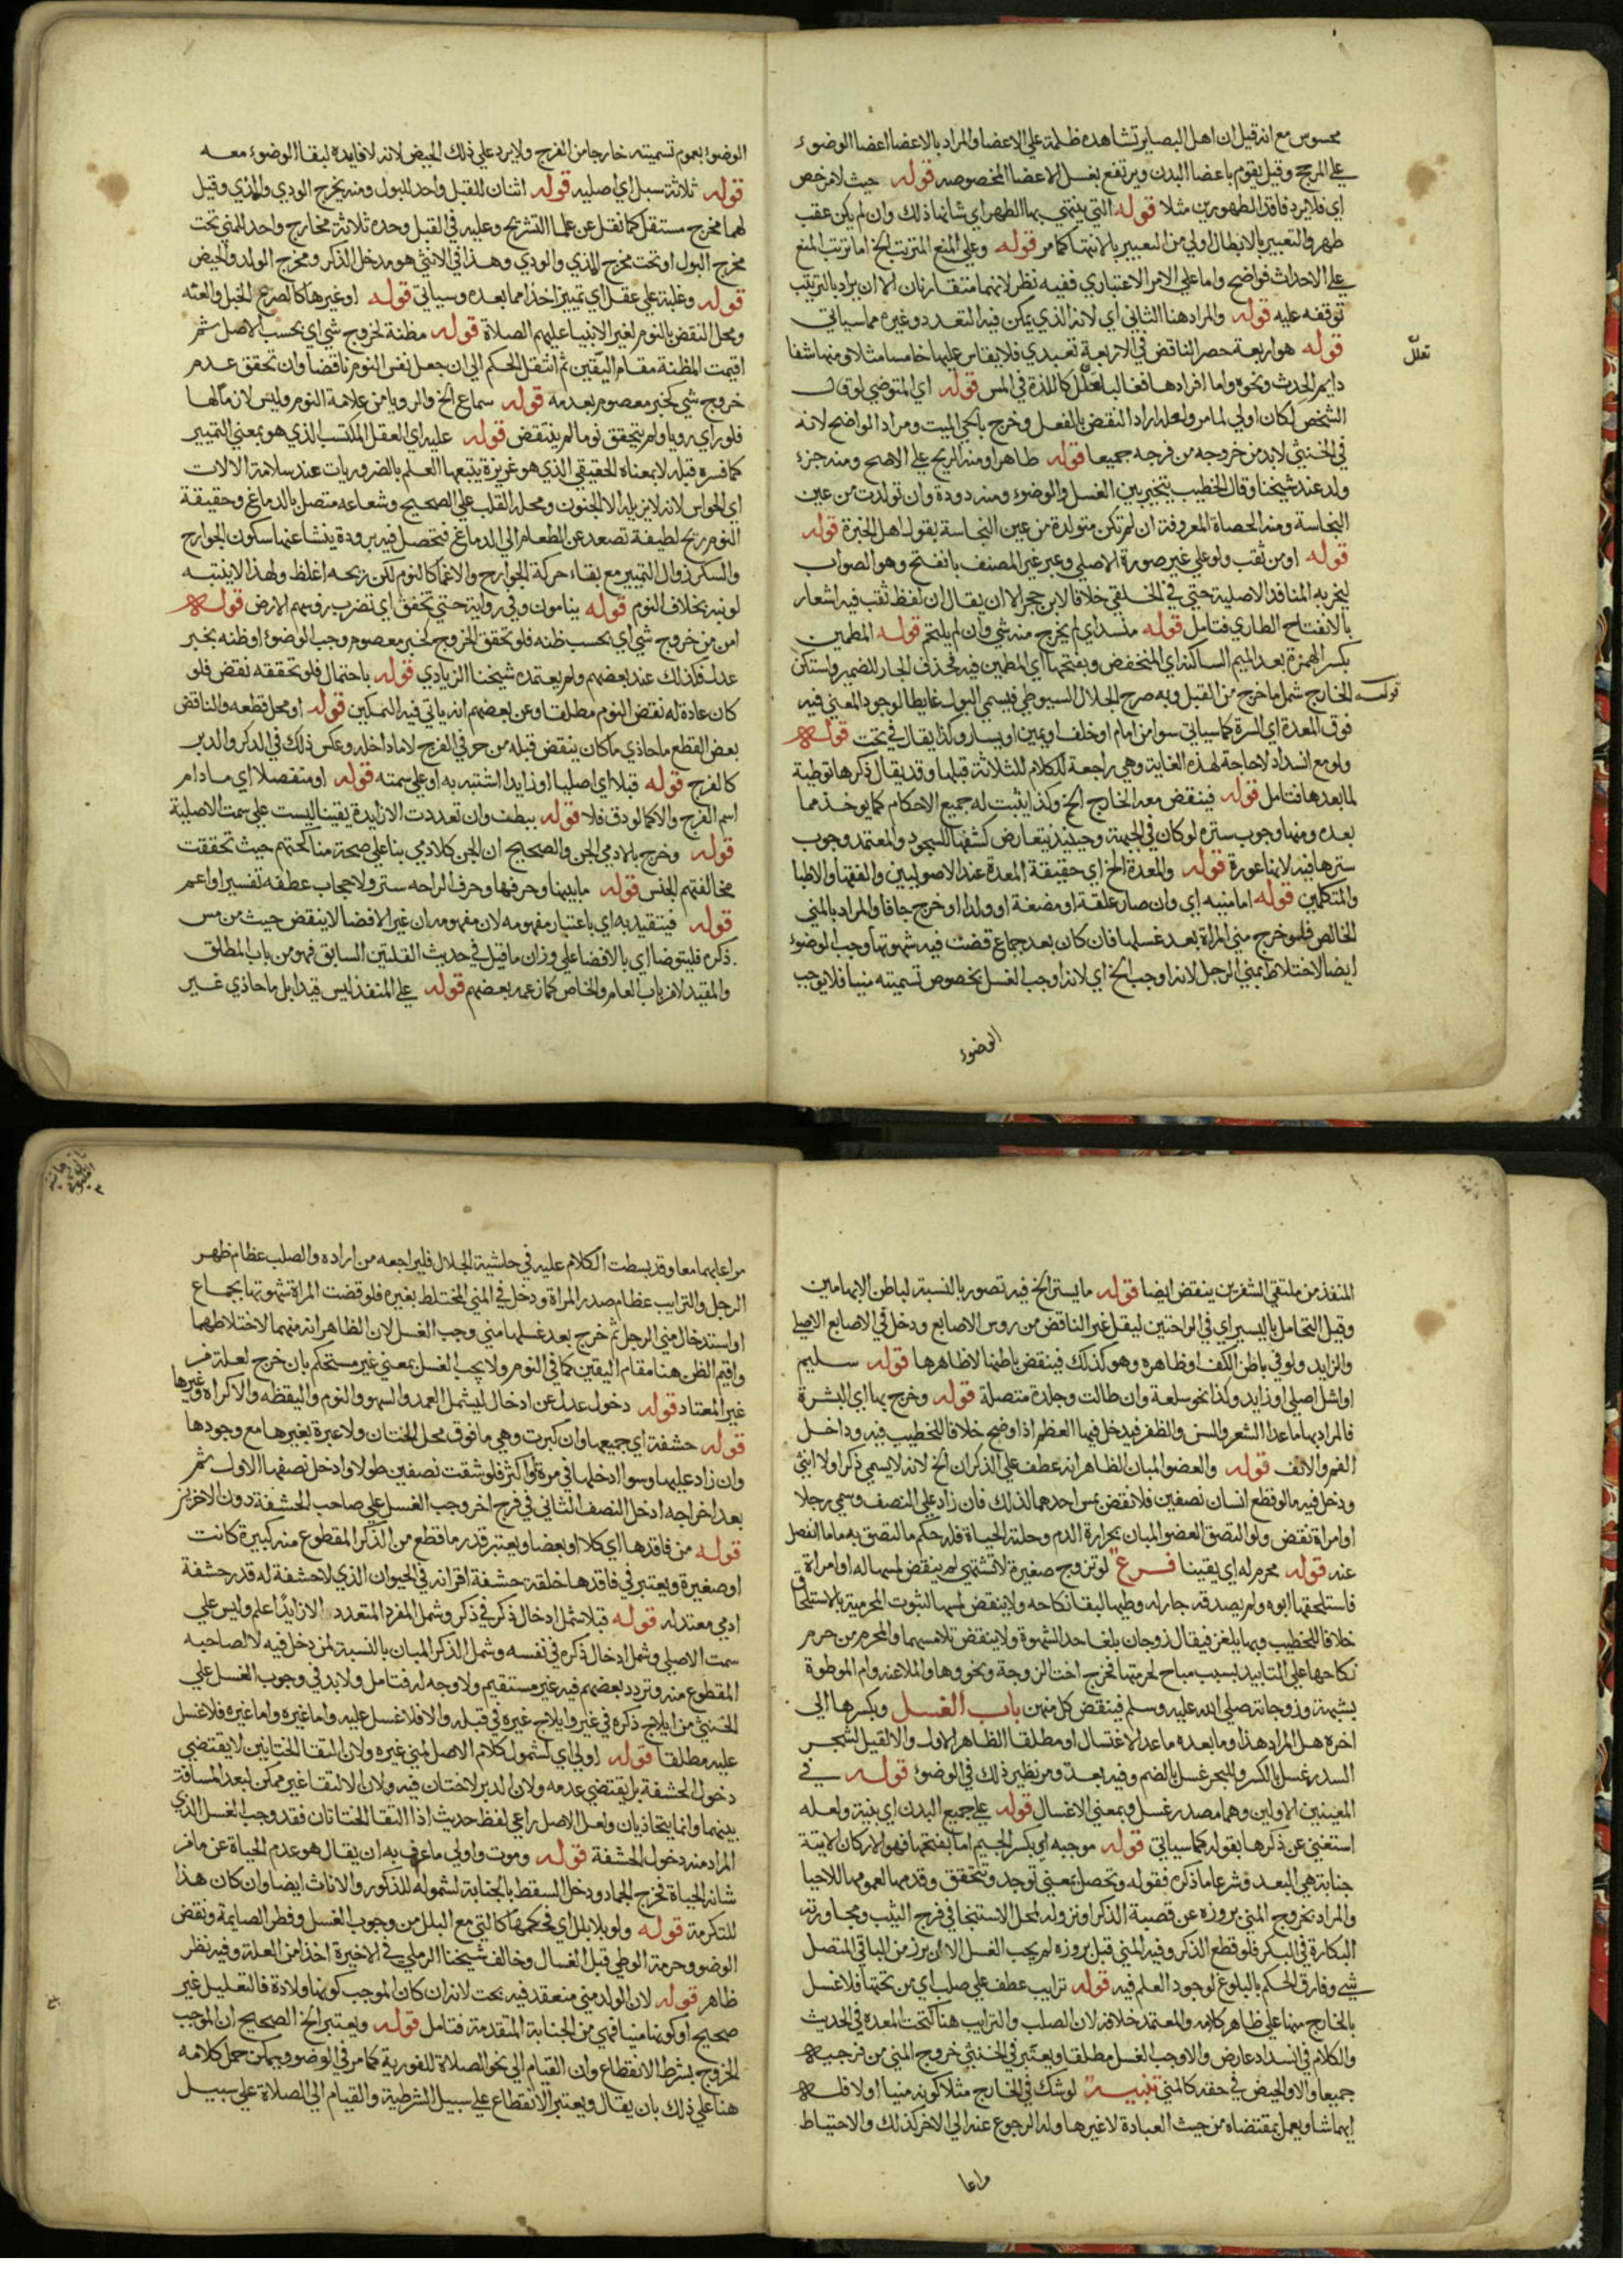 محسوس مع انه قيل ان اهل البصاير تشاهده ظلمة علي الاعضا والمراد بالاعضا اعضا الوضوء
علي المرجح وقيل يقوم باعضا البدن ويرتفع بغسل الاعضا المخصوصه قوله حيث لا مرخص
اي فلا يرد فاقد الطهورين مثلا قوله التي ينتهي بها الطهر اي شانها ذلك وان لم يكن عقب
طهر والتعبير بالابطال اولي من التعبير بالانتها كما مر قوله وعلي المنع المترتب الخ اما ترتب المنع
علي الاحداث فواضح واما علي الامر الاعتباري ففيه نظر لانهما متقارنان الا ان يراد بالترتيب
توقفه عليه قوله والمراد هنا الثاني اي لانه الذي يمكن فيه التعدد وغيره مما سياتي
قوله هو اربعة حصر الناقض في الاربعة تعبدي فلا يقاس عليها خامسا مثلا ومنها شفا
تعلل
دايم الحدث ونحوه واما افرادها فغالبا تعلل كاللذة في المس قوله اي المتوضي لو قال
الشخص لكان اولي لما مر ولعله اراد النقض بالفعل وخرج بالحي الميت ومراد الواضح لانه
في الخنثي لا بد من خروجه من فرجيه جميعا قوله طاهرا ومنه الريح علي الاصح ومنه جزء
ولد عند شيخنا وقال الخطيب يتخير بين الغسل والوضوء ومنه دودة وان تولدت من عين
النجاسة ومنه الحصاة المعروفة ان لم تكن متولدة من عين النجاسة بقول اهل الخبرة قوله
قوله او من ثقب ولو علي غير صورة الاصلي وعبر غير المصنف بانفتح وهو الصواب
ليخرج به المنافذ الاصلية حتي في الخلقي خلافا لابن حجر الا ان يقال ان لفظ ثقب فيه اشعار
بالانفتاح الطاري فتامل قوله منسد اي لم يخرج منه شي وان لم يلتحم قوله المطمين
بكسر الهمزة بعد الميم الساكنة اي المنخفض وبفتحها اي المطمين فيه فحذف الجار للضمير واستكن
قوله الخارج شمل ما خرج من القبل وبه صرح الجلال السيوطي فيسمي البول غايطا لوجود المعني فيه
فوق المعدة اي السرة كما سياتي سوا من امام او خلف او يمين او يسار وكذا يقال في تحت قوله
ولو مع انسداد لا حاجة لهذه الغاية وهي راجعة للكلام للثلاثة قبلها وقد يقال ذكرها توطية
لما بعدها فتامل قوله فينقض معه الخارج الخ وكذا يثبت له جميع الاحكام كما يوخذ مما
بعده ومنها وجوب ستره لو كان في الجبهة وحينيذ يتعارض كشفها للسجود والمعتمد وجوب
سترها فيه لانها عورة قوله والمعدة الخ اي حقيقة المعدة عند الاصوليين والفقها والاطبا
والمتكلمين قوله اما منيه اي وان صار علقة او مضغة او ولدا او خرج جافا والمراد بالمني
الخالص فلو خرج مني المراة بعد غسلها فان كان بعد جماع قضت فيه شهوتها وجب الوضوء
ايضا لاختلاطه بمني الرجل لانه اوجب الخ اي لانه اوجب الغسل بخصوص تسميته منيا فلا يوجب
الوضوء
الوضوء بعموم تسميته خارجا من الفرج ولا يرد علي ذلك الحيض لانه لا فايده لبقا الوضوء معه
قوله ثلاثة سبل اي اصلية قوله اثنان للقبل واحد للبول ومنه يخرج الودي والمذي وقيل
لهما مخرج مستقل كما نقل عن علما التشريح وعليه في القبل وحده ثلاثة مخارج واحد للمني تحت
مخرج البول او تحت مخرج المذي والودي وهذا في الانثي هو مدخل الذكر ومخرج الولد والحيض
قوله وغلبة علي عقل اي تمييز اخذا مما بعده وسياتي قوله او غيرها كالصرع الخبل والعته
ومحل النقض بالنوم لغير الانبيا عليهم الصلاة قوله مظنة لخروج شي اي بحسب الاصل ثم
اقيمت المظنة مقام اليقين ثم انتقل الحكم الي ان جعل نفس النوم ناقضا وان تحقق عدم
خروج شي كخبر معصوم بعدمه قوله سماع الخ والرويا من علامة النوم وليس لازما لها
فلو راي رويا ولم يتحقق نوما لم ينتقض قوله عليه اي العقل المكتسب الذي هو بمعني التمييز
كما فسره قبله لا بمعناه الحقيقي الذي هو غريزة يتبعها العلم بالضروريات عند سلامة الالات
اي الحواس لانه لا يزيله الا الجنون ومحله القلب علي الصحيح وشعاعه متصل بالدماغ وحقيقة
النوم ريح لطيفة تصعد عن الطعام الي الدماغ فيتحصل فيه برودة ينشا عنها سكون الجوارح
والسكر زوال التمييز مع بقاء حركة الجوارح والاغما كالنوم لكن ريحه اغلظ ولهذا لا ينتبه
لو نبه بخلاف النوم قوله ينامون وفي رواية حتي تخفق اي تضرب روسهم الارض قوله
امن من خروج شي اي بحسب ظنه فلو تحقق الخروج كخبر معصوم وجب الوضوء او ظنه بخبر
عدل فكذلك عند بعضهم ولم يعتمده شيخنا الزيادي قوله باحتمال فلو تحققه نقض فلو
كان عادة له نقض النوم مطلقا وعن بعضهم انه ياتي فيه التمكين قوله او محل قطعه والناقض
بعض القطع ما حاذي ما كان ينقض قبله من حرفي الفرج لا ما داخله وعكس ذلك في الذكر والدبر
كالفرج قوله قبلا اي اصليا او زايدا اشتبه به او علي سمته قوله او منفصلا اي ما دام
اسم الفرج والا كما لو دق فلا قوله ببطن وان تعددت الا زايدة يقينا ليست علي سمت الاصلية
قوله وخرج بالادمي الجن والصحيح ان الجن كالادمي بنا علي صحة مناكحتهم حيث تحققت
مخالفتهم الجنس قوله ما بينها وحرفها وحرف الراحه ستر ولا حجاب عطفه تفسير او اعم
قوله فيتقيد به اي باعتبار مفهومه لان مفهومه ان غير الافضا لا ينقض حيث من مس
ذكره فليتوضا اي بالافضا علي وزان ما قيل في حديث القلتين السابق فهو من باب المطلق
والمقيد لا من باب العام والخاص كما زعمه بعضهم قوله علي المنفذ ليس قيدا بل ما حاذي غير
المنفذ من ملتقي الشفرين ينقض ايضا قوله ما يستر الخ فيه تصور بالنسبة لباطن الابهامين
وقيل التحامل باليسير اي في الراحتين ليقل غير الناقض من روس الاصابع ودخل في الاصابع الاصلي
والزايد ولو في باطن الكف او ظاهره وهو كذلك فينقض باطنها لا ظاهرها قوله سليم
او اشل اصلي او زايد وكذا نحو سلعة وان طالت وجلدة متصلة قوله وخرج بها اي البشرة
فالمراد بها ما عدا الشعر والسن والظفر فيدخل فيها العظم اذا وضح خلافا للخطيب فيه وداخل
الفم والانف قوله والعضو المبان الظاهر انه عطف علي الذكر ان الخ لانه لا يسمي ذكرا ولا انثي
ودخل فيه ما لو قطع انسان نصفين فلا نقض بمس احدهما لذلك فان زاد علي النصف وسمي رجلا
او امراة نقض ولو التصق العضو المبان بحرارة الدم وحلته الحياة فله حكم ما التصق به مما انفصل
عنه قوله محرم له اي يقينا فرع لو تزوج صغيرة لا تشتهي لم ينقض لمسها له او امراة
فاستلحقها ابوه ولم يصدقه جاز له وطيها لبقا نكاحه ولا ينتقض لمسها لثبوت المحرمية بالاستلحاق
خلافا للخطيب وبها يلغز فيقال زوجان بلغا حد الشهوة ولا ينقض تلامسهما والمحرم من حرم
نكاحها علي التابيد بسبب مباح لحرمتها فخرج اخت الزوجة ونحوها والملاعنه وام الموطوة
بشبهة وزوجاته صلي الله عليه وسلم فينقض كل منهن باب الغسل وبكسرها الي
اخره هل المراد هذا وما بعده ما عدا الاغتسال او مطلقا الظاهر الاول والا لقيل لشجر
السدر غسل بالكسر وللبحر غسل بالضم وفيه بعد ومر نظير ذلك في الوضوء قوله في
المعنيين الاولين وهما مصدر غسل وبمعني الاغسال قوله علي جميع البدن اي بنية ولعله
استغني عن ذكرها بقوله كما سياتي قوله موجبه اي بكسر الجيم اما بفتحها فهو الاركان الاتية
جنابة هي البعد وشرعا ما ذكره فقوله وتحصل بمعني توجد وتتحقق وقدمها لعمومها للاحيا
والمراد بخروج المني بروزه عن قصبة الذكر او نزوله لمحل الاستنجا في فرج الثيب ومجاوزته
البكارة في البكر فلو قطع الذكر وفيه المني قبل بروزه لم يجب الغسل الا ان برز من الباقي المتصل
شي وفارق الحكم بالبلوغ لوجود العلم فيه قوله ترايب عطف علي صلب اي من تحتها فلا غسل
بالخارج منها علي ظاهر كلامه والمعتمد خلافه لان الصلب والترايب هنا كتحت المعدة في الحديث
والكلام في انسداد عارض والا وجب الغسل مطلقا ويعتبر في الخنثي خروج المني من فرجيه
جميعا والا والحيض في حقه كالمني تنبيه لو شك في الخارج مثلا كونه منيا او لا فله
ايهما شا ويعمل بمقتضاه من حيث العبادة لا غيرها وله الرجوع عنه الي الاخر كذلك والاحتياط
مراعا
مراعاتهما معا وقد بسطت الكلام عليه في حاشية الجلال فليراجعه من اراده والصلب عظام ظهر
الرجل والترايب عظام صدر المراة ودخل في المني المختلط بغيره فلو قضت المراة شهوتها بجماع
او استدخال مني الرجل ثم خرج بعد غسلها مني وجب الغسل لان الظاهر انه منهما لاختلاطهما
واقيم الظن هنا مقام اليقين كما في النوم ولا يجب الغسل بمعني غير مستحكم بان خرج لعلة من
غير المعتاد قوله دخول عدل عن ادخال ليشمل العمد والسهو والنوم واليقظه والاكراه وغيرها
قوله حشفة اي جميعها وان كبرت وهي ما فوق محل الختان ولا عبرة بغيرها مع وجودها
وان زاد عليها وسوا ادخلها في مرة او اكثر فلو شقت نصفين طولا وادخل نصفها الاول ثم
بعد اخراجه ادخل النصف الثاني في فرج اخر وجب الغسل علي صاحب الحشفة دون الاخرين
قوله من فاقدها اي كلا او بعضا ويعتبر قدر ما قطع من الذكر المقطوع منه كبيرة كانت
او صغيرة ويعتبر في فاقدها خلقة حشفة اقرانه في الحيوان الذي لا حشفة له قدر حشفة
ادمي معتدله قوله قبلا شمل ادخال ذكر في ذكر وشمل المفرد المتعدد الا زايدا علم وليس علي
سمت الاصلي وشمل ادخال ذكره في نفسه وشمل الذكر المبان بالنسبة لمن دخل فيه لا لصاحبه
المقطوع منه وتردد بعضهم فيه غير مستقيم ولا وجه له فتامل ولا بد في وجوب الغسل علي
الخنثي من ايلاج ذكره في غير وايلاج غيره في قبله والا فلا غسل عليه واما غيره واما غيره فلا غسل
عليه مطلقا قوله اولي اي لشمول كلام الاصل لمني غيره ولان التقا الختانين لا يقتضي
دخول الحشفة بل يقتضي عدمه ولان الدبر لا ختان فيه ولان الالتقا غير ممكن لبعد المسافة
بينهما وانما يتحاذيان ولعل الاصل راعي لفظ حديث اذا التقا الختانان فقد وجب الغسل الذي
المراد منه دخول الحشفة قوله وموت واولي ما عرف به ان يقال هو عدم الحياة عن ما من
شانه الحياة فخرج الجماد ودخل السقط بالجنابة لشموله للذكور والاناث ايضا وان كان هذا
للتكرمة قوله ولو بلا بلل اي فحكمها كالتي مع البلل من وجوب الغسل وفطر الصايمة ونقض
الوضو وحرمة الوطي قبل الغسال وخالف شيخنا الرملي في الاخيرة اخذا من العلة وفيه نظر
ظاهر قوله لان الولد مني منعقد فيه بحث لانه ان كان الموجب كونها ولادة فالتعليل غير
صحيح او كونها منيا فهي من الجنابة المتقدمة فتامل قوله ويعتبر الخ الصحيح ان الموجب
الخروج بشرط الانقطاع وان القيام الي نحو الصلاة للفورية كما مر في الوضو ويمكن حمل كلامه
هنا علي ذلك بان يقال ويعتبر الانقطاع علي سبيل الشرطية والقيام الي الصلاة علي سبيل